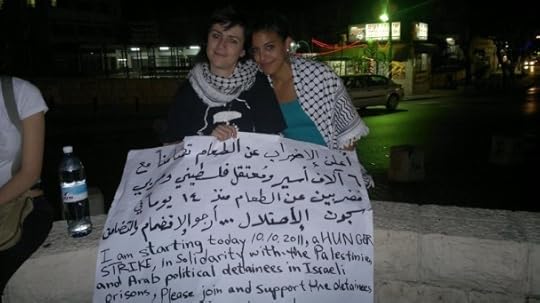 أعلن الإضراب عن الطعام تضامنا مع
٦ آلاف أسير ومعتقل فلسطيني وعربي
مضربين عن الطعام منذ ١٤ يوما في
سجون الإحتلال ... أرجو الإنضمام والتضامن
I am starting today 10.10.2011, a HUNGER
STRIKE, in Solidarity with the Palestinien
and Arab political detainees in Israeli
prisons, Please join and support the detainees